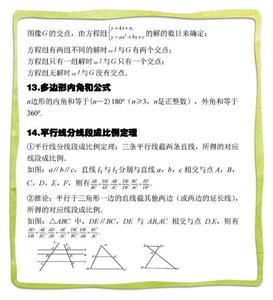 图像G的交点，由方程组{y=kx+n, y=ax²+bx+c的解的数目来确定：
方程组有两组不同的解时⇔l与G有两个交点；
方程组只有一组解时⇔l与G只有一个交点；
方程组无解时⇔l与G没有交点。
13.多边形内角和公式
n边形的内角和等于(n-2)180º (n≥3，n是正整数)，外角和等于
360º
14.平行线分线段成比例定理
①平行线分线段成比例定理：三条平行线截两条直线，所得的对应
线段成比例。
如图：a∥b∥c，直线l₁与l₂分别与直线a，b，c相交与点A，B，
C，D，E，F，则有
②推论：平行于三角形一边的直线截其他两边(或两边的延长线)，
所得的对应线段成比例。
如图：△ABC中，DE∥BC，DE与AB,AC相交与点D,E，则有